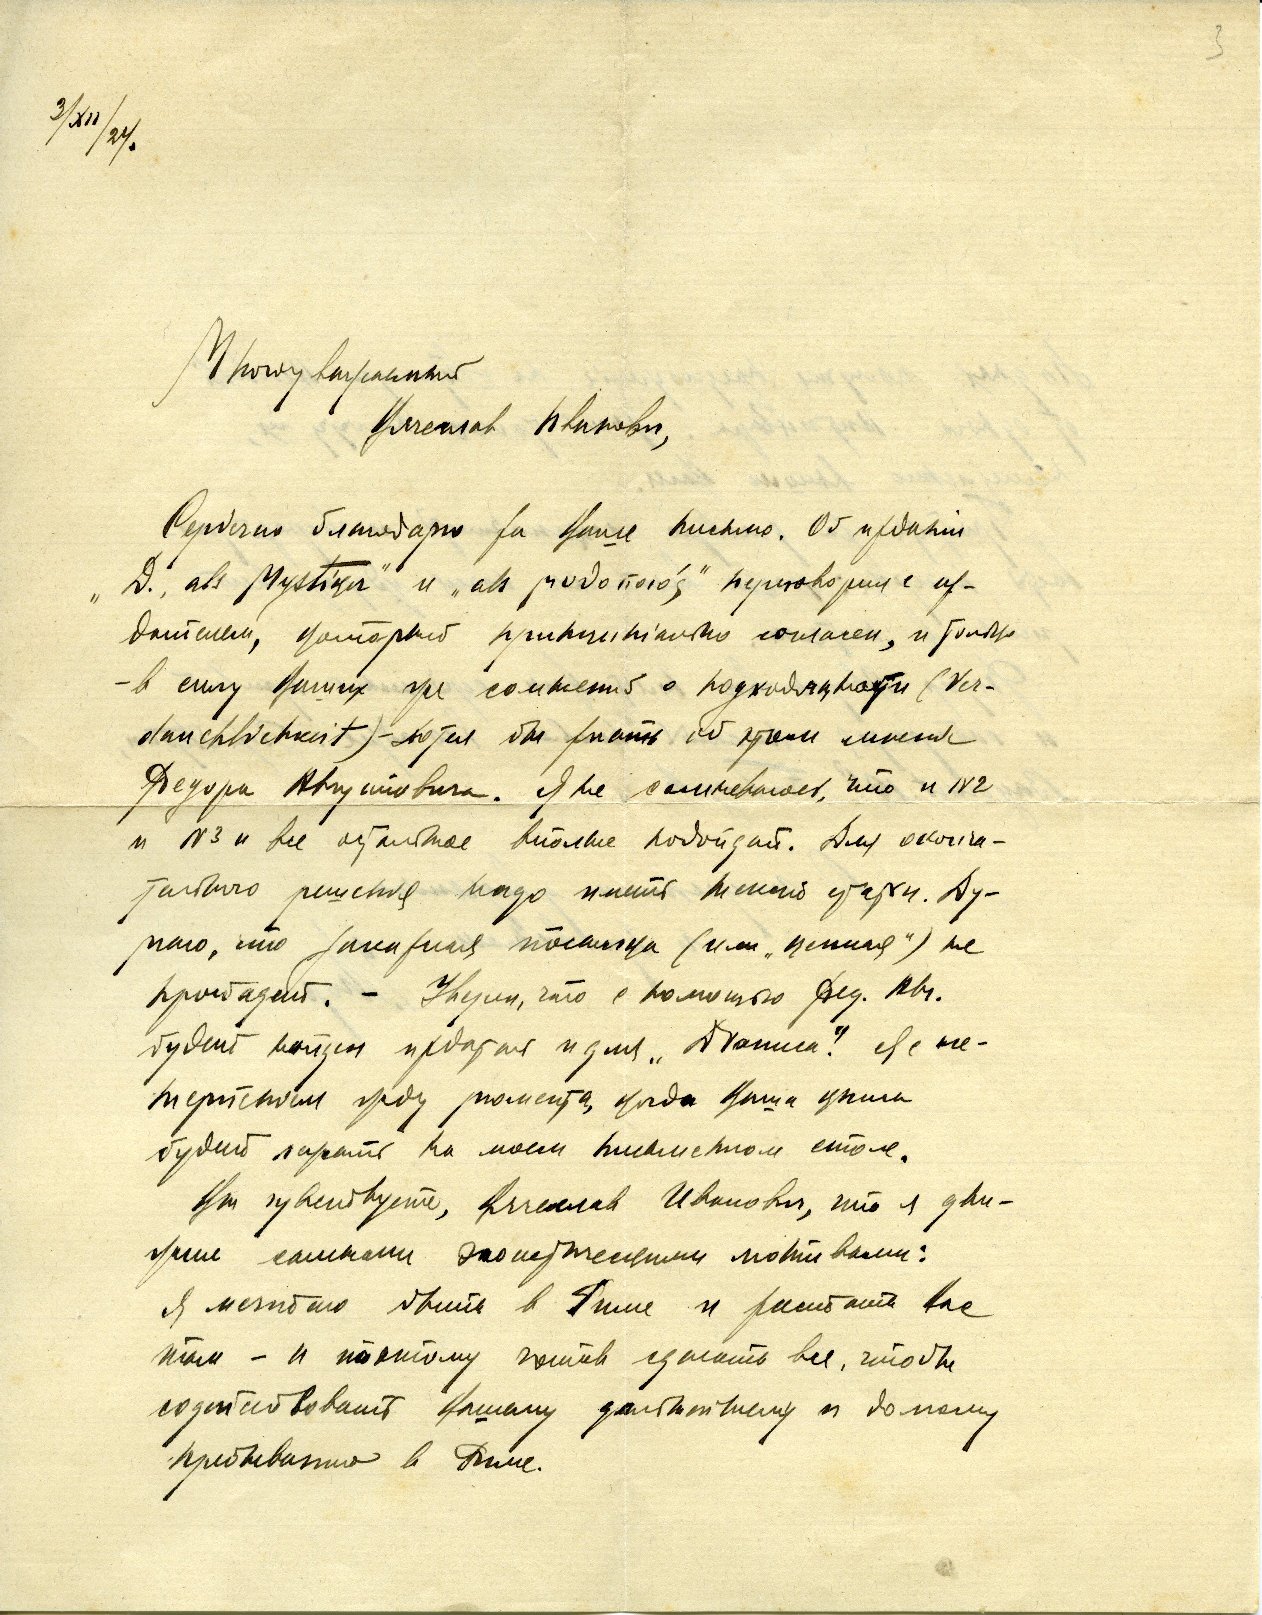 3
3/XII/24.
Многоуважаемый
Вячеслав Иванович,
Сердечно благодарю за Ваше письмо. Об издании
„D., als Mystiker“ и „als μυθοποιός“ переговорил с из-
дателем, который принципиально согласен, и только
- в силу Ваших же сомнений о подходящности (Ver-
dauchlichkeit) - хотел бы знать об этом мнение
Федора Августовича. Я не сомневаюсь, что и №2
и №3 и все остальное вполне подойдет. Для оконча-
тельного решения надо иметь немецкий
Ду-
маю, что заказная посылка (или „ценная“) не
пропадет. - Уверен, что с помощью Фед. Авг.
будет найден издатель и для „Диониса“. Я с не-
терпением жду момента, когда Ваша книга
будет лежать на моем письменном столе.
Вы чувствуете, Вячеслав Иванович, что я дви-
жим самыми эгоистическими мотивами:
Я мечтаю быть в Риме и застать Вас
там - и поэтому готов сделать все, чтобы
содействовать Вашему длительному и долгому
пребыванию в Риме.